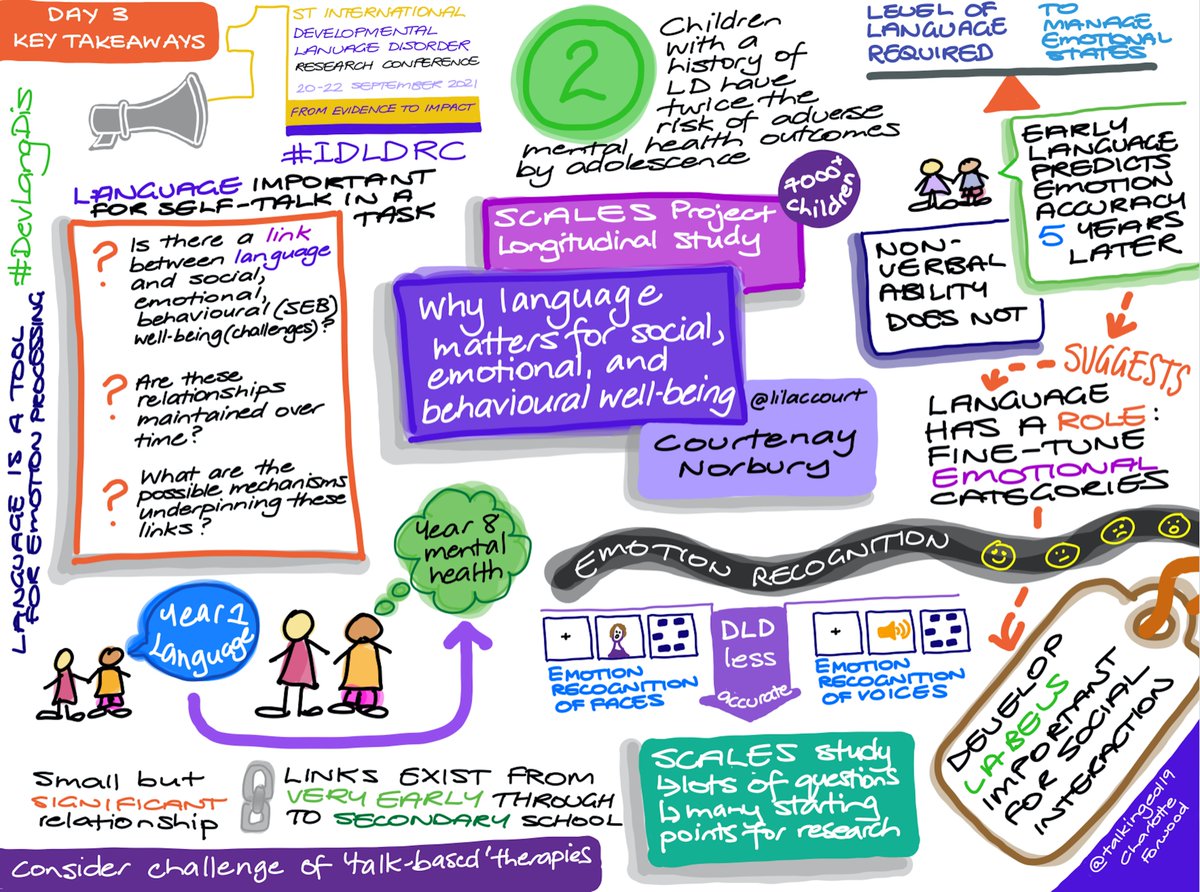 DAY 3
KEY TAKEAWAYS
1
ST INTERNATIONAL
DEVELOPMENTAL
LANUAGE DISORDER
RESEARCH CONFERENCE
20-22 SEPTEMBER 2021
FROM EVIDENCE TO IMPACT
#IDLDRC
#DevLangDis
LANGUAGE IS A TOOL
FOR EMOTION PROCESSING
LANGUAGE IMPORTANT
FOR SELF-TALK IN A
TASK
? Is there a link
between language
and social,
emotional,
behavioural (SEB)
well-being (challenges)?
? Are these
relationships
maintained over
time?
? What are the
possible mechanisms
underpinning these
links?
2
Children
with a
history of
LD have
twice the
risk of adverse
mental health outcomes
by adolescence
7000+
children
SCALES Project
Longitudinal study
Why language
matters for social,
emotional, and
behavioural well-being
@lilaccourt
Courtenay
Norbury
LEVEL OF
LANGUAGE
REQUIRED
TO
MANAGE
EMOTIONAL
STATES
EARLY
LANGUAGE
PREDICTS
EMOTION
ACCURACY
5 YEARS
LATER
NON-
VERBAL
ABILITY
DOES NOT
SUGGESTS
LANGUAGE
HAS A ROLE:
FINE-TUNE
EMOTIONAL
CATEGORIES
EMOTION RECOGNITION
+
EMOTION
RECOGNITION
OF FACES
DLD
less
accurate
+
EMOTION
RECOGNITION
OF VOICES
DEVELOP
LABELS
IMPORTANT
FOR SOCIAL
INTERACTION
Year 1
Language
Year 8
mental
health
Small but
SIGNIFICANT
relationship
LINKS EXIST FROM
VERY EARLY THROUGH
TO SECONDARY SCHOOL
SCALES study
↳lots of questions
↳many starting
points for research
Consider challenge of 'talk-based' therapies
@talkinged119
Charlotte
Forwood